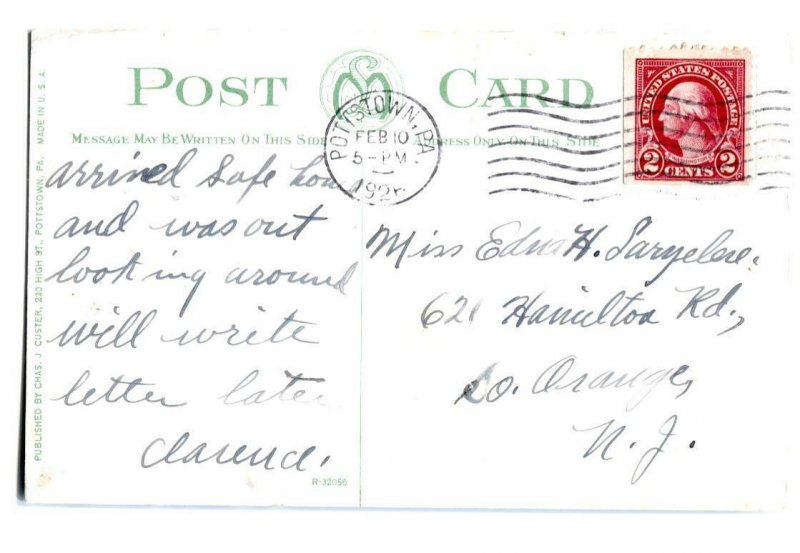 POST CARD
MESSAGE MAY BE WRITTEN ON THIS SIDE
ADDRESS ONLY ON THIS SIDE
POTTSTOWN, PA.
FEB 10
5-PM
192
UNITED STATES POSTAGE
2 CENTS 2
arrived safe
and was out
looking around
will write
letter later
Clarence.
Miss Edna H.
621 Hamilton Rd.,
So. Orange,
N. J.
PUBLISHED BY CHAS. J. CUSTER, 220 HIGH ST., POTTSTOWN, PA. MADE IN U.S.A.
R-32056